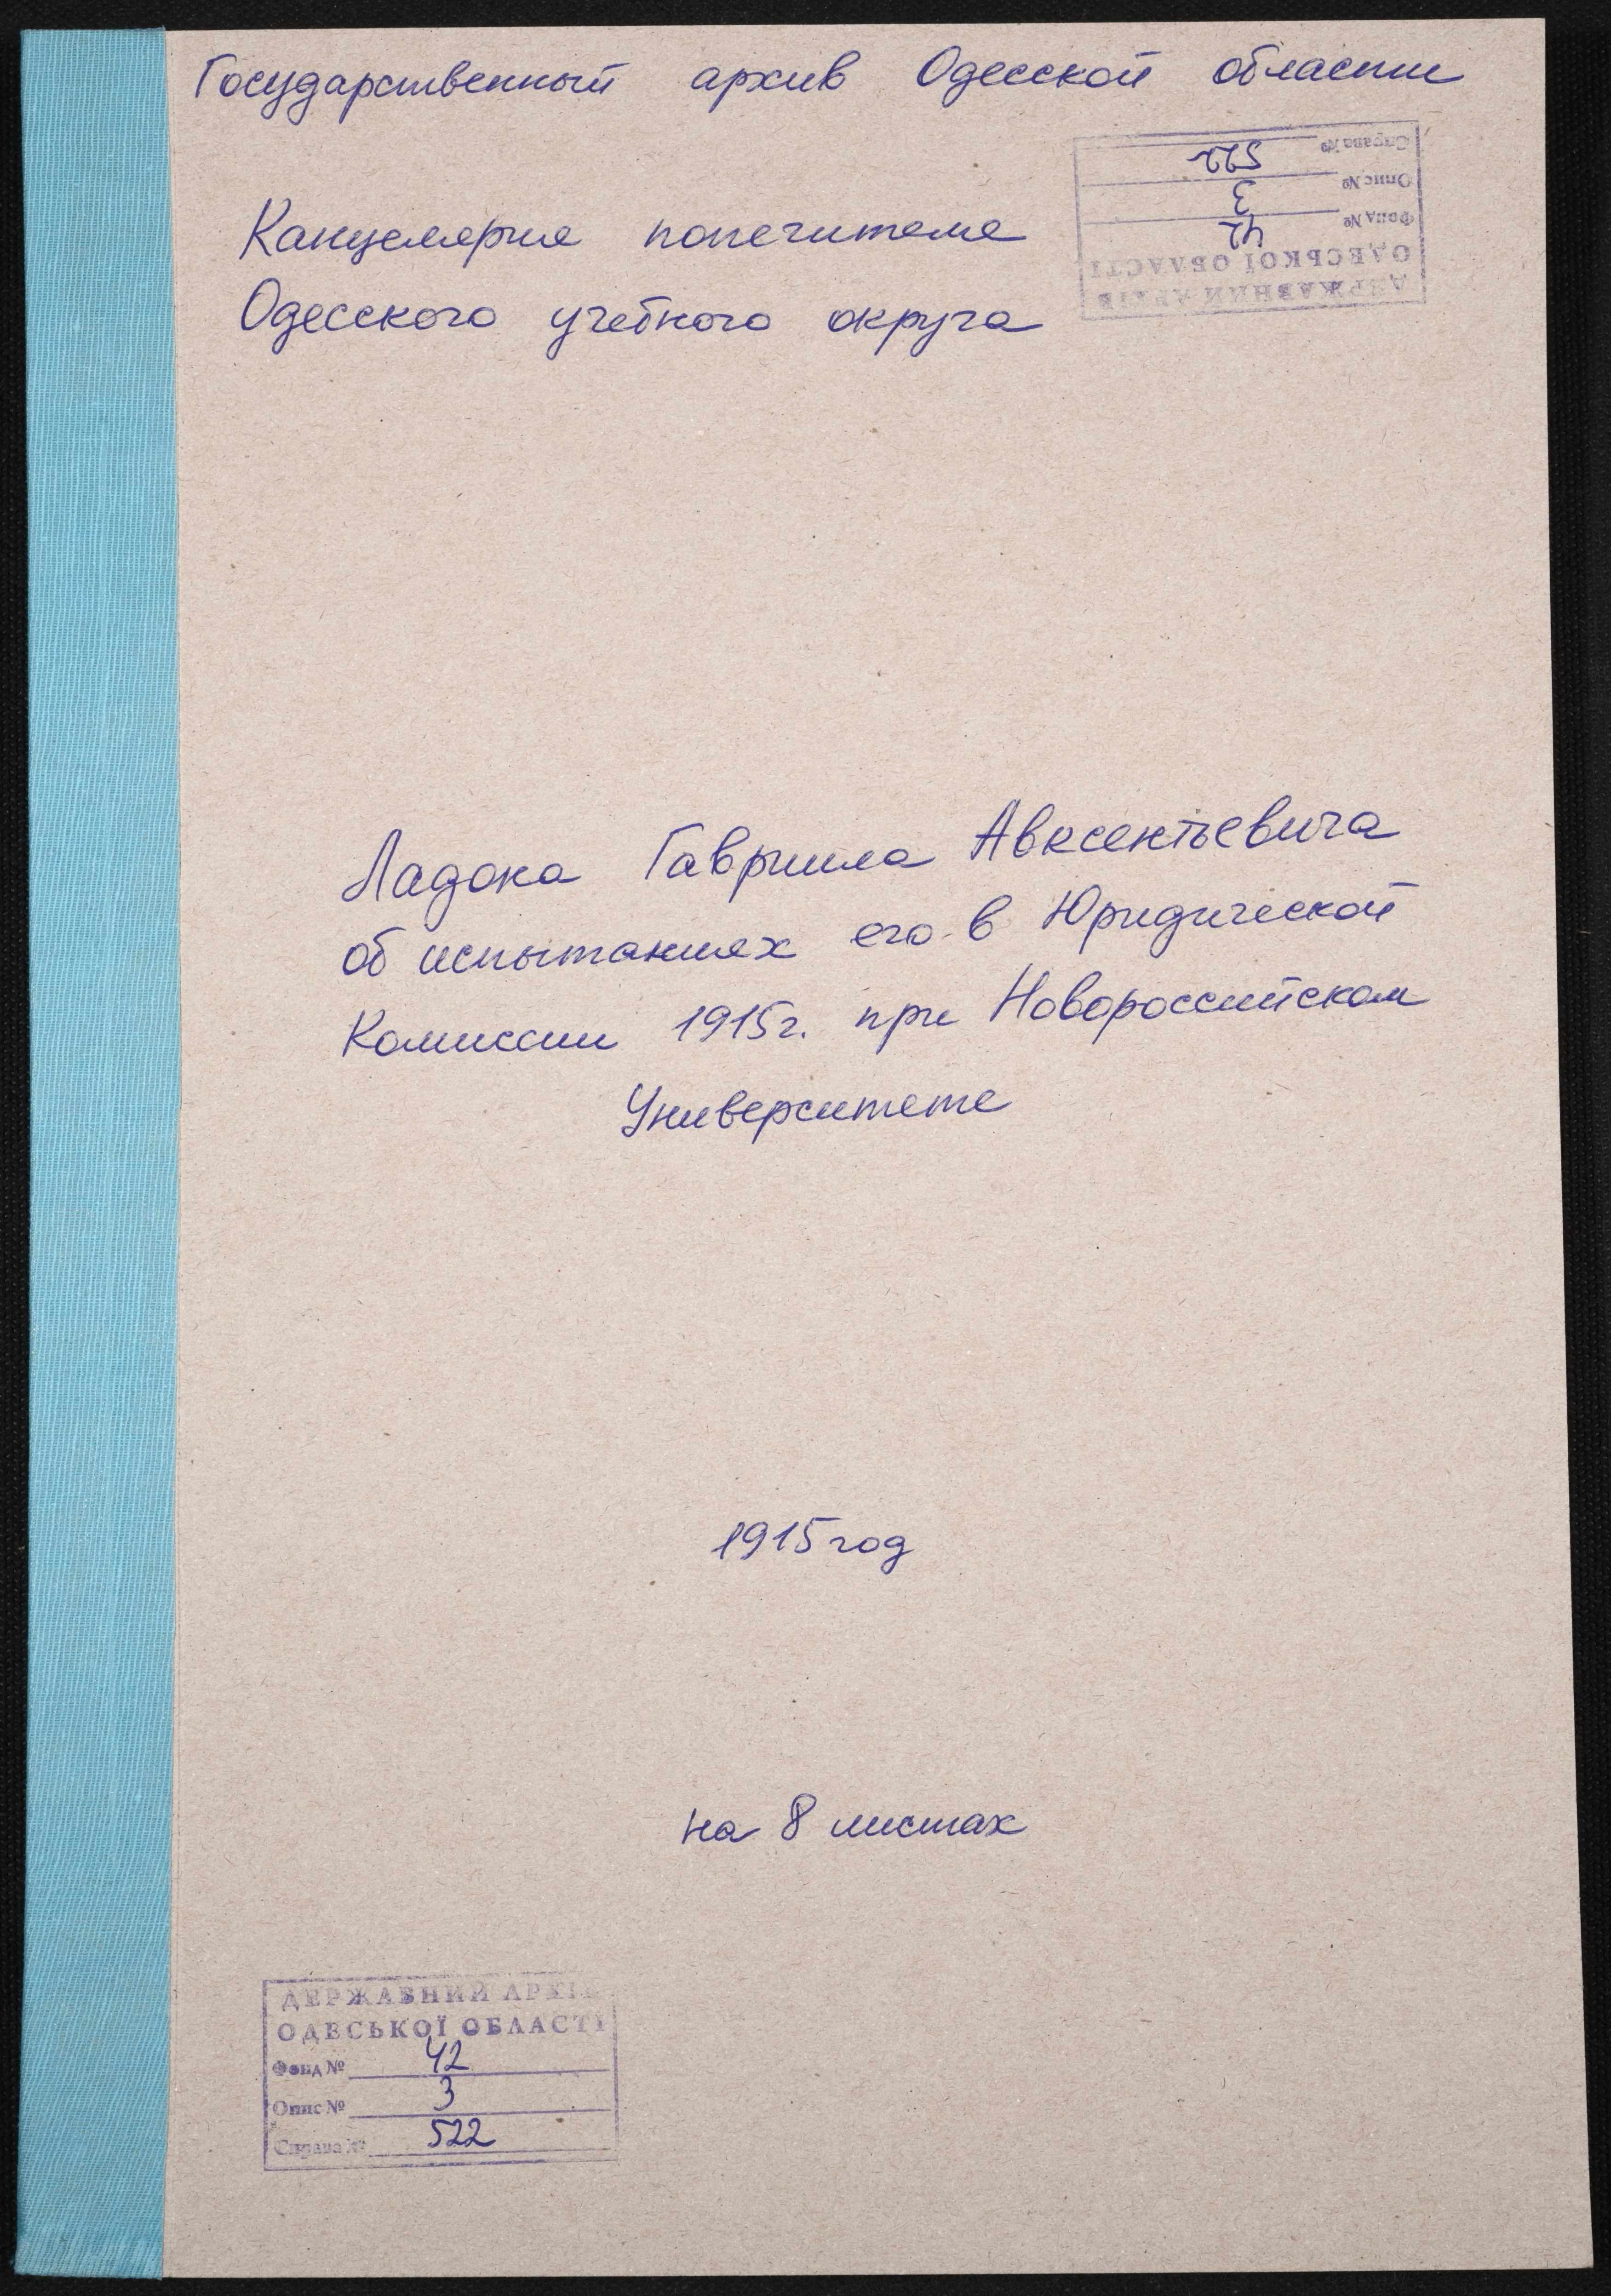 Государственный архив Одесской области
ДЕРЖАВНИЙ АРХІВ
ОДЕСЬКОЇ ОБЛАСТІ
Фонд № 42
Опис № 3
Справа № 522
Канцелярия попечителя
Одесского учебного округа
Ладока Гавриила Авксентьевича
об испытаниях его в Юридической
Комиссии 1915г. при Новороссийском
Университете
1915 год
на 8 листах
ДЕРЖАВНИЙ АРХІВ
ОДЕСЬКОЇ ОБЛАСТІ
Фонд № 42
Опис № 3
Справа № 522